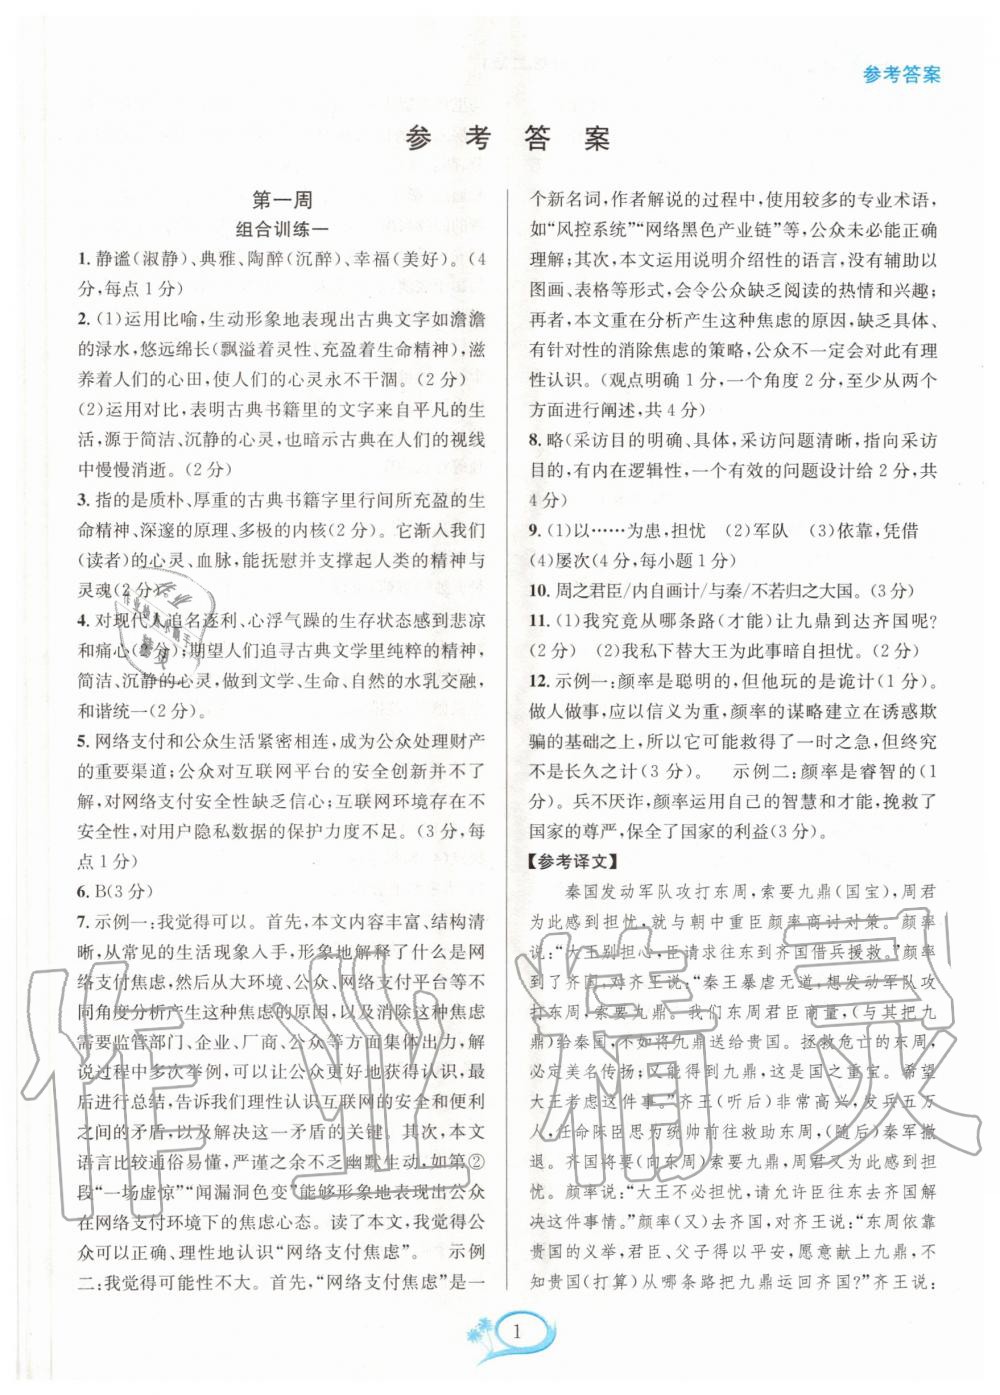 参考答案
参 考 答 案
第一周
组合训练一
1. 静谧(淑静)、典雅、陶醉(沉醉)、幸福(美好)。(4
分,每点1分)
2. (1)运用比喻,生动形象地表现出古典文字如澹澹
的渌水,悠远绵长(飘溢着灵性、充盈着生命精神),滋
养着人们的心田,使人们的心灵永不干涸。(2分)
(2)运用对比,表明古典书籍里的文字来自平凡的生
活,源于简洁、沉静的心灵,也暗示古典在人们的视线
中慢慢消逝。(2分)
3. 指的是质朴、厚重的古典书籍字里行间所充盈的生
命精神、深邃的原理、多极的内核(2分)。它渐入我们
(读者)的心灵、血脉,能抚慰并支撑起人类的精神与
灵魂(2分)。
4. 对现代人追名逐利、心浮气躁的生存状态感到悲凉
和痛心(2分);期望人们追寻古典文学里纯粹的精神,
简洁、沉静的心灵,做到文学、生命、自然的水乳交融,
和谐统一(2分)。
5. 网络支付和公众生活紧密相连,成为公众处理财产
的重要渠道;公众对互联网平台的安全创新并不了
解,对网络支付安全性缺乏信心;互联网环境存在不
安全性,对用户隐私数据的保护力度不足。(3分,每
点1分)
6. B(3分)
7. 示例一:我觉得可以。首先,本文内容丰富、结构清
晰,从常见的生活现象入手,形象地解释了什么是网
络支付焦虑,然后从大环境、公众、网络支付平台等不
同角度分析产生这种焦虑的原因,以及消除这种焦虑
需要监管部门、企业、厂商、公众等方面集体出力,解
说过程中多次举例,可以让公众更好地获得认识,最
后进行总结,告诉我们理性认识互联网的安全和便利
之间的矛盾,以及解决这一矛盾的关键。其次,本文
语言比较通俗易懂,严谨之余不乏幽默生动,如第②
段“一场虚惊”“闻漏洞色变”能够形象地表现出公众
在网络支付环境下的焦虑心态。读了本文,我觉得公
众可以正确、理性地认识“网络支付焦虑”。 示例
二:我觉得可能性不大。首先,“网络支付焦虑”是一
个新名词,作者解说的过程中,使用较多的专业术语,
如“风控系统”“网络黑色产业链”等,公众未必能正确
理解;其次,本文运用说明介绍性的语言,没有辅助以
图画、表格等形式,会令公众缺乏阅读的热情和兴趣;
再者,本文重在分析产生这种焦虑的原因,缺乏具体、
有针对性的消除焦虑的策略,公众不一定会对此有理
性认识。(观点明确1分,一个角度2分,至少从两个
方面进行阐述,共4分)
8. 略(采访目的明确、具体,采访问题清晰,指向采访
目的,有内在逻辑性,一个有效的问题设计给2分,共
4分)
9. (1)以……为患,担忧 (2)军队 (3)依靠,凭借
(4)屡次(4分,每小题1分)
10. 周之君臣/内自画计/与秦/不若归之大国。(3分)
11. (1)我究竟从哪条路(才能)让九鼎到达齐国呢?
(2分) (2)我私下替大王为此事暗自担忧。(2分)
12. 示例一:颜率是聪明的,但他玩的是诡计(1分)。
做人做事,应以信义为重,颜率的谋略建立在诱惑欺
骗的基础之上,所以可能救得了一时之急,但终究
不是长久之计(3分)。 示例二:颜率是睿智的(1
分)。兵不厌诈,颜率运用自己的智慧和才能,挽救了
国家的尊严,保全了国家的利益(3分)。
【参考译文】
秦国发动军队攻打东周,索要九鼎(国宝),周君
为此感到担忧,就与朝中重臣颜率商讨对策。颜率
说:“大王别担心,臣请求往东到齐国借兵援救。”颜率
到了齐国,对齐王说:“秦王暴虐无道,想发动军队攻
打东周,索要九鼎。我们东周君臣商量,(与其把九鼎
给)秦国,不如将九鼎送给贵国。拯救危亡的东周,
必定美名传扬;得到九鼎,是国之重宝。希望
大王考虑这件事。”齐王(听后)非常高兴,发兵五万
人,任命陈臣思为统帅前往救助东周,(随后)秦军撤
退。齐国将要(向东周)要九鼎,周君又为此事担忧。
颜率说:“大王不必担心,请允许臣往东去齐国解
决这件事情。”颜率(又)去齐国,对齐王说:“东周依靠
贵国的义举,君臣、父子得以平安,愿意献上九鼎,不
知贵国(打算)从哪条路把九鼎运回齐国?”齐王说:
1
作业精灵